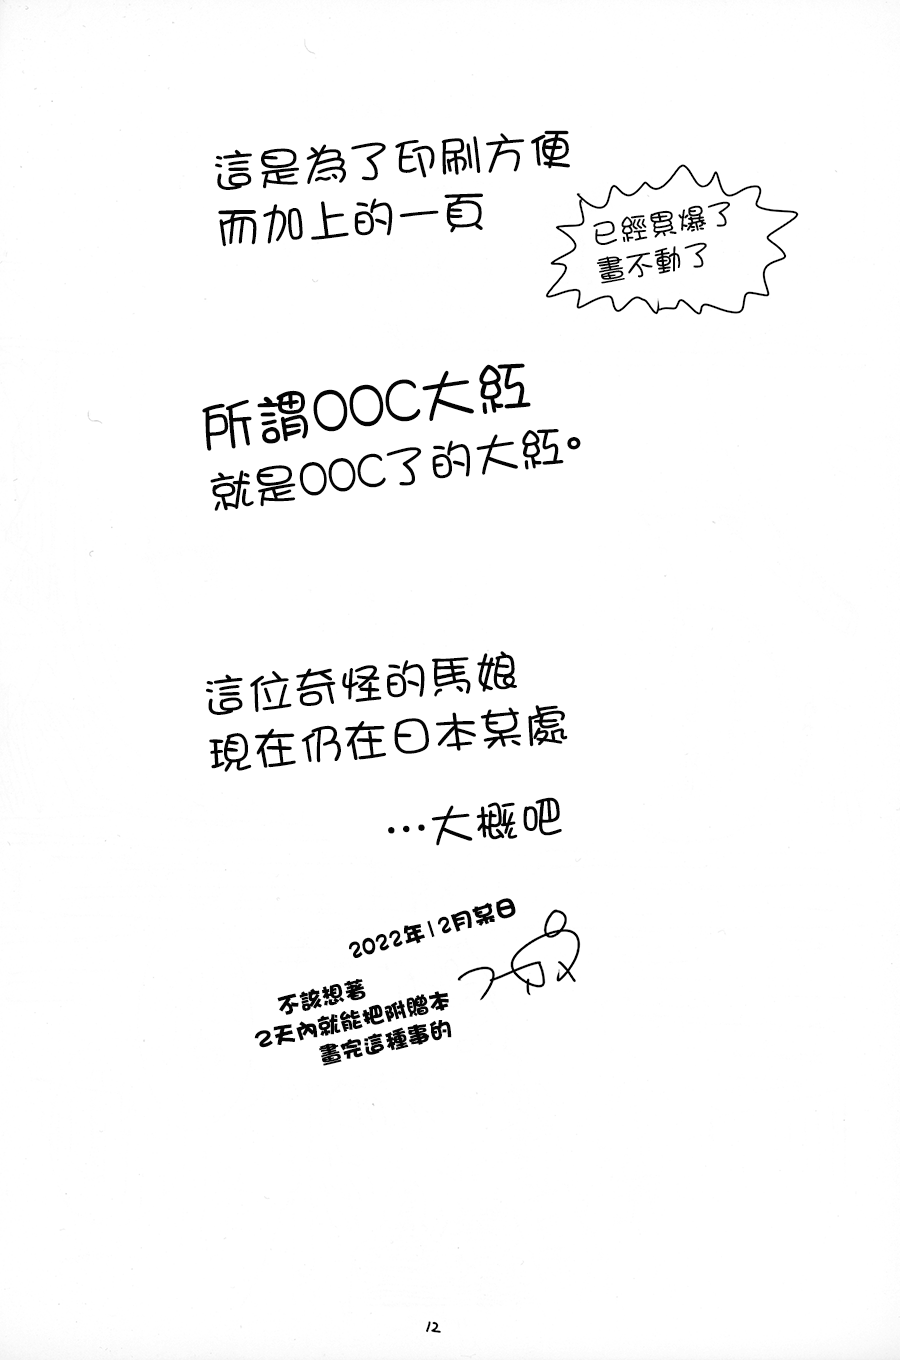 這是為了印刷方便
而加上的一頁
已經累爆了
畫不動了
所謂OOC大紅
就是OOC了的大紅。
這位奇怪的馬娘
現在仍在日本某處
…大概吧
2022年12月某日
不該想著
2天內就能把附贈本
畫完這種事的
12